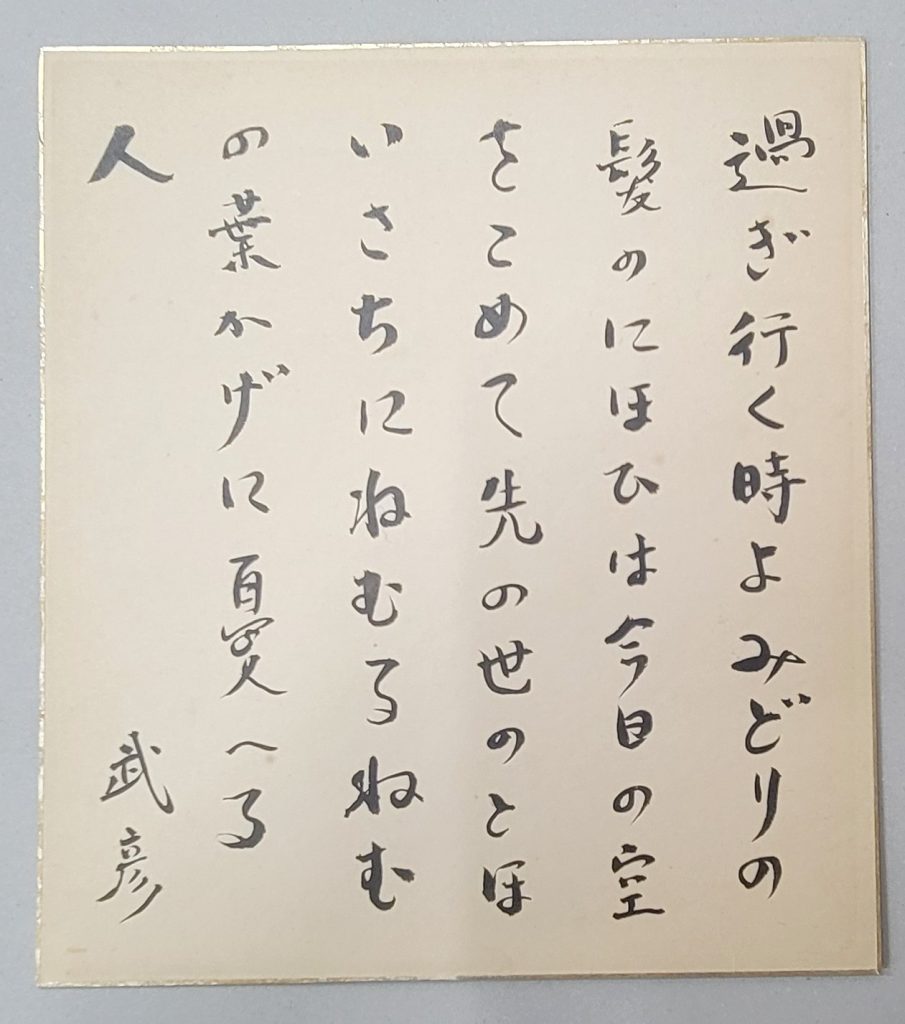 過ぎ行く時よみどりの
髪のにほひは今日の空
をこめて先の世のとほ
いさちにねむるねむ
の葉かげに憂へる
人
武彦